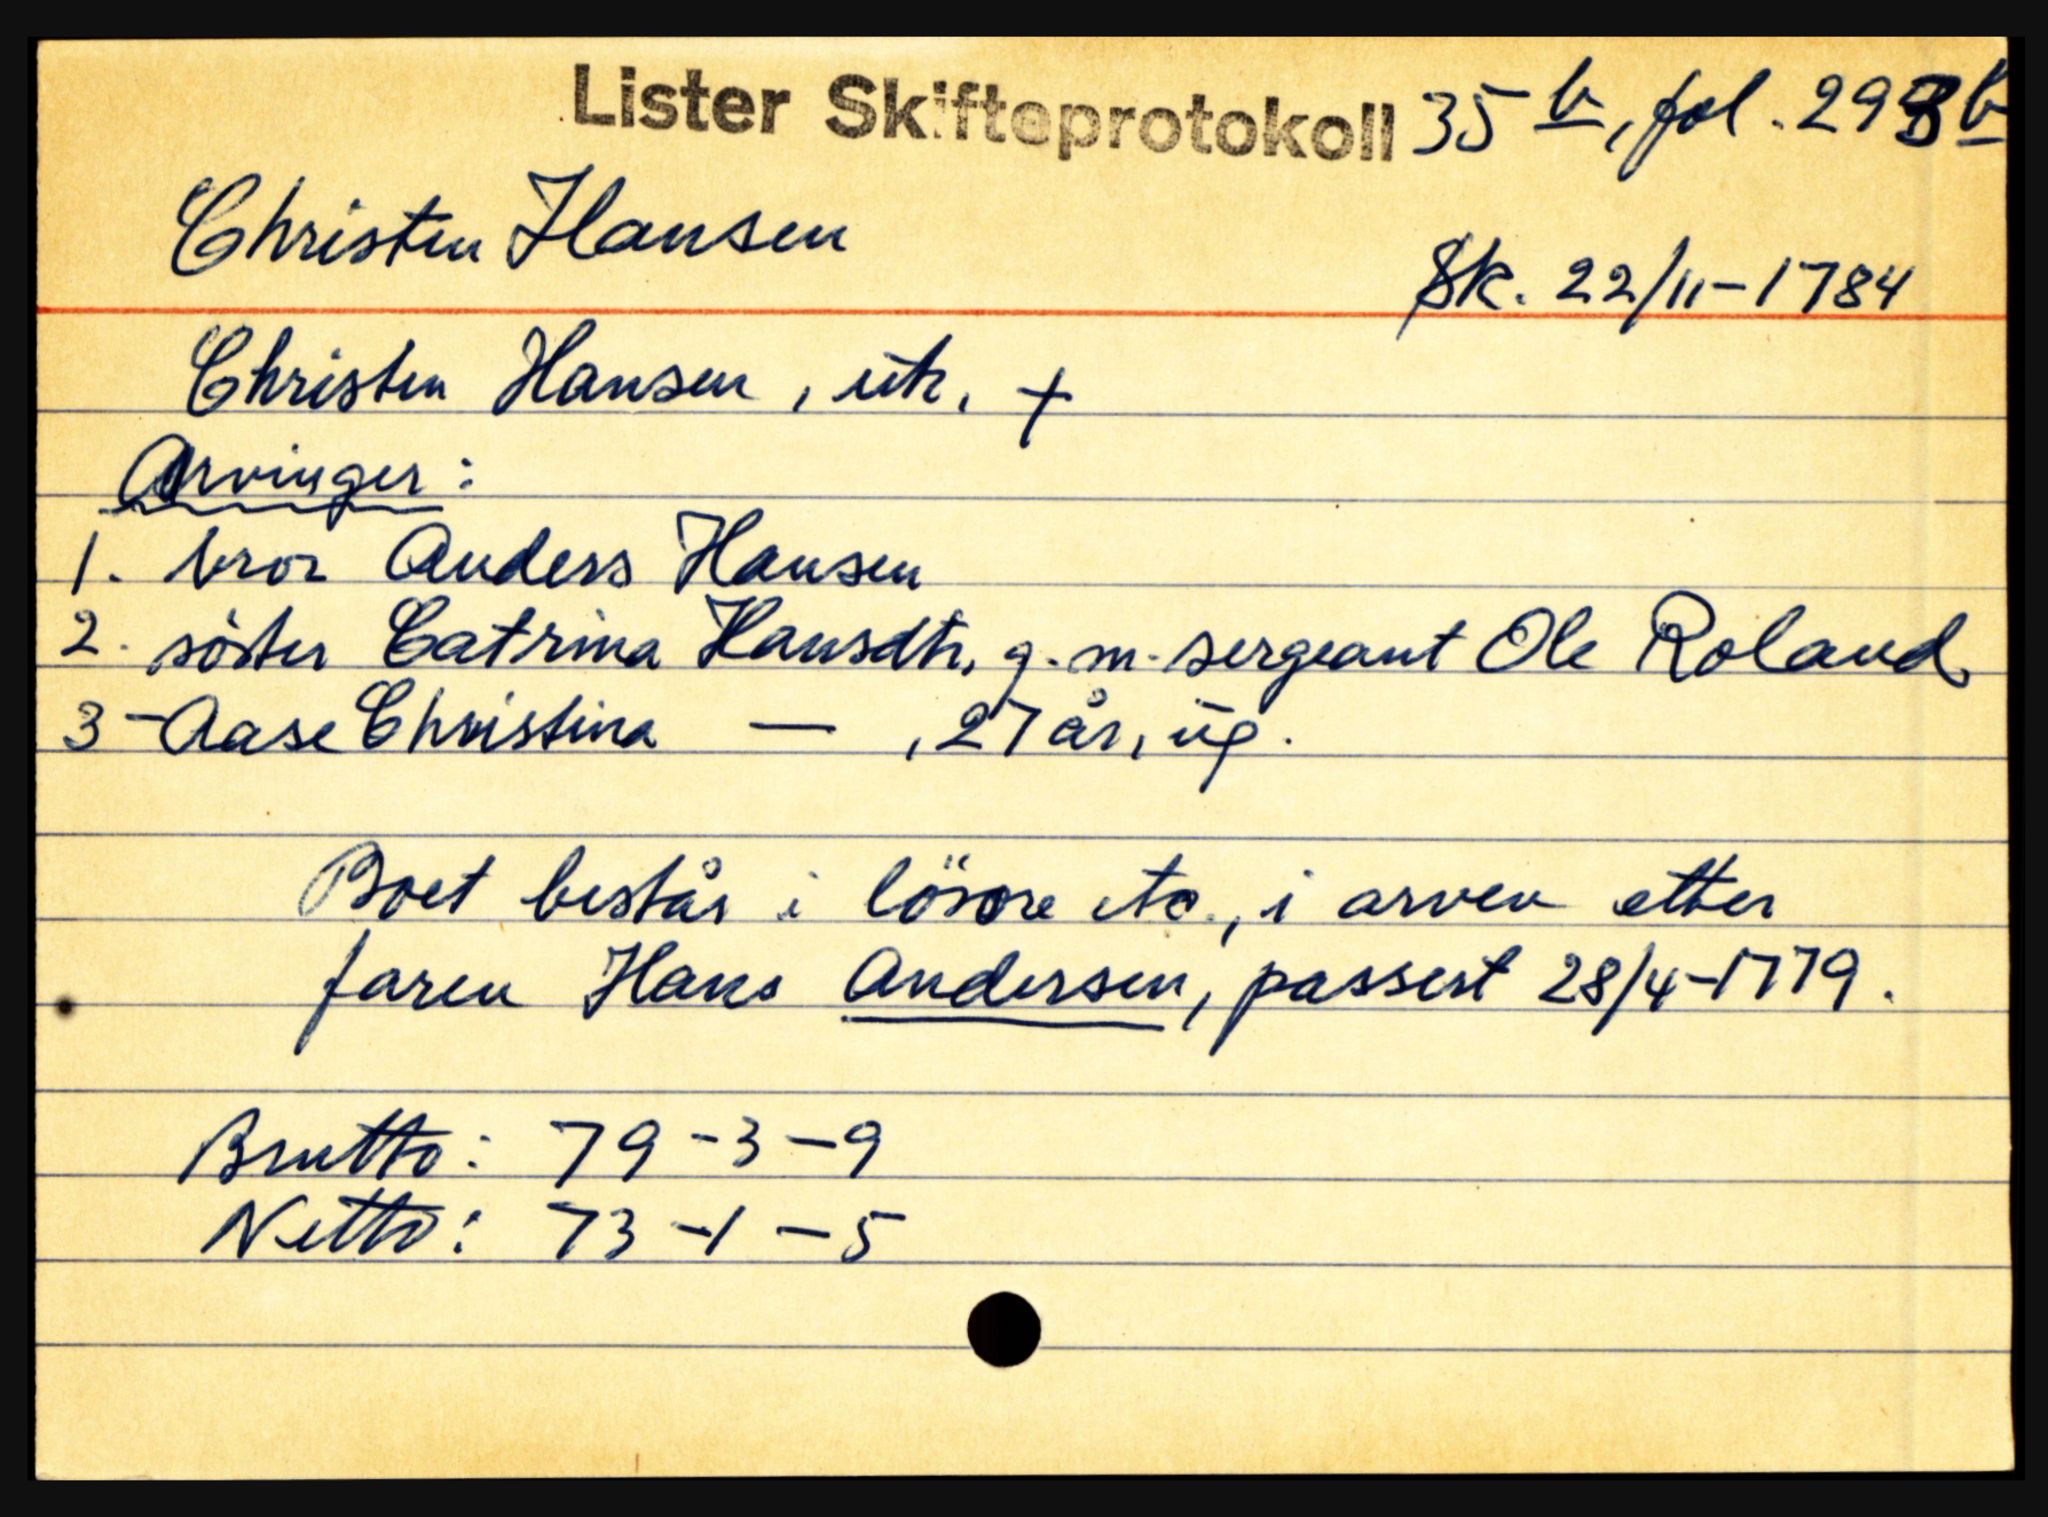 Lister Skifteprotokoll 35 b, fol. 293 b
Christen Hansen
Sk. 22/11-1784
Christen Hansen, utr. +
Arvinger:
1. bror Anders Hansen
2. söster Catrina Hansdtr. g.m. sergeant Ole Roland
3 - Aase Christina — , 27 år, ug.
Boet består i lösöre etc., i arven etter
faren Hans Andersen, passert 28/4-1779.
Brutto: 79-3-9
Netto: 73-1-5